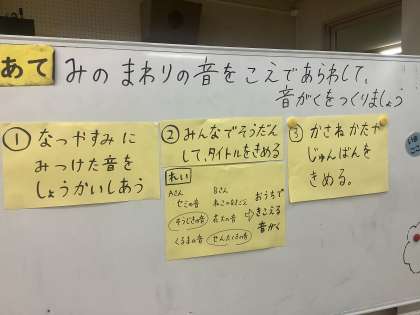 めあて
みのまわりの音をこえであらわして、
音がくをつくりましょう
① なつやすみに
みつけた音を
しょうかいしあう
② みんなでそうだん
して、タイトルをきめる
れい
Aさん
Bさん
セミの音
ねこのなきごえ
そうじきの音
花火の音
くるまの音
せんたくきの音
⇨
おうちで
きこえる
音がく
③ かさねかたや
じゅんばんを
きめる。